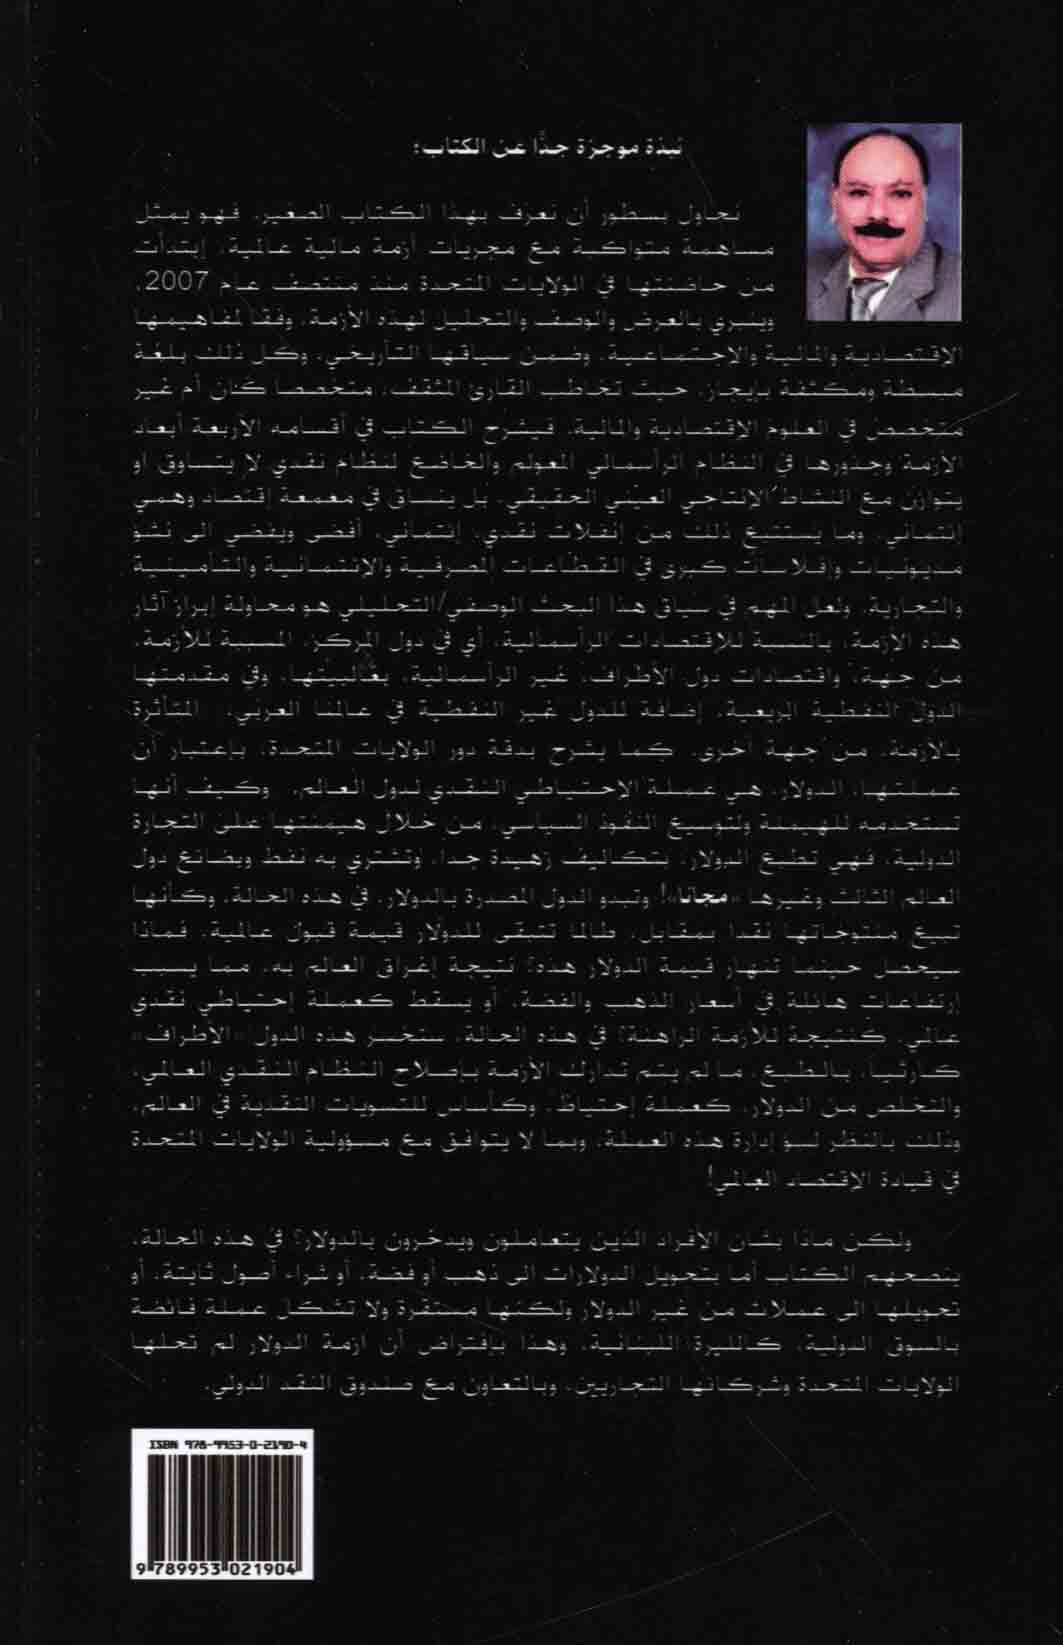 نبذة موجزة جدًا عن الكتاب:
نحاول بسطور أن نعرف بهذا الكتاب الصغير. فهو يمثل
مساهمة متواكبة مع مجريات أزمة مالية عالمية، إبتدأت
من حاضنتها في الولايات المتحدة منذ منتصف عام 2007.
وينبري بالعرض والوصف والتحليل لهذه الأزمة، وفقا لمفاهيمها
الاقتصادية والمالية والإجتماعية، وضمن سياقها التأريخي. وكل ذلك بلغة
مبسطة ومكثفة بإيجاز. حيث تخاطب القارئ المثقف، متخصصا كان أم غير
متخصص في العلوم الاقتصادية والمالية. فيشرح الكتاب في أقسامه الأربعة أبعاد
الأزمة وجذورها في النظام الرأسمالي المعولم والخاضع لنظام نقدي لا يتساوق او
يتوازن مع النشاط الإنتاجي العيني الحقيقي. بل ينساق في معمعة إقتصاد وهمي
إئتماني. وما يستتبع ذلك من إنفلات نقدي، إئتماني. أفضى ويفضي الى نشؤ
مديونيات وإفلاسات كبرى في القطاعات المصرفية والإئتمانية والتأمينية
والتجارية. ولعل المهم في سياق هذا البحث الوصفي/التحليلي هو محاولة إبراز آثار
هذه الأزمة، بالنسبة للاقتصادات الرأسمالية، أي في دول المركز، المسببة للأزمة،
من جهة، واقتصادات دول الأطراف، غير الرأسمالية، بغالبيتها، وفي مقدمتها
الدول النفطية الريعية، إضافة للدول غير النفطية في عالمنا العربي، المتأثرة
بالأزمة، من جهة أخرى. كما يشرح بدقة دور الولايات المتحدة، بإعتبار أن
عملتها، الدولار، هي عملة الإحتياطي النقدي لدول العالم. وكيف أنها
تستخدمه للهيمنة ولتوسيع النفوذ السياسي، من خلال هيمنتها على التجارة
الدولية. فهي تطبع الدولار، بتكاليف زهيدة جدا، وتشتري به نفط وبضائع دول
العالم الثالث وغيرها «مجانا»! وتبدو الدول المصدرة بالدولار، في هذه الحالة، وكأنها
تبيع منتوجاتها نقدا بمقابل، طالما تتبقى للدولار قيمة قبول عالمية. فماذا
سيحصل حينما تنهار قيمة الدولار هذه؟ نتيجة إغراق العالم به، مما يسبب
إرتفاعات هائلة في أسعار الذهب والفضة، أو يسقط كعملة إحتياطي نقدي
عالمي، كنتيجة للأزمة الراهنة؟ في هذه الحالة، ستخسر هذه الدول «الأطراف»
كارثيا، بالطبع، ما لم يتم تدارك الأزمة بإصلاح النظام النقدي العالمي،
والتخلص من الدولار، كعملة إحتياط، وكأساس للتسويات النقدية في العالم،
وذلك بالنظر لسؤ إدارة هذه العملة، وبما لا يتوافق مع مسؤولية الولايات المتحدة
في قيادة الإقتصاد العالمي!
ولكن ماذا بشأن الأفراد الذين يتعاملون ويدخرون بالدولار؟ في هذه الحالة،
ينصحهم الكتاب أما بتحويل الدولارات الى ذهب أو فضة، أو شراء أصول ثابتة، أو
تحويلها الى عملات من غير الدولار ولكنها مستقرة ولا تشكل عملة فائضة
بالسوق الدولية، كالليرة اللبنانية، وهذا بإفتراض أن ازمة الدولار لم تحلها
الولايات المتحدة وشركائها التجاريين، وبالتعاون مع صندوق النقد الدولي.
ISBN 978-9953-0-2190-4
9 789953 021904